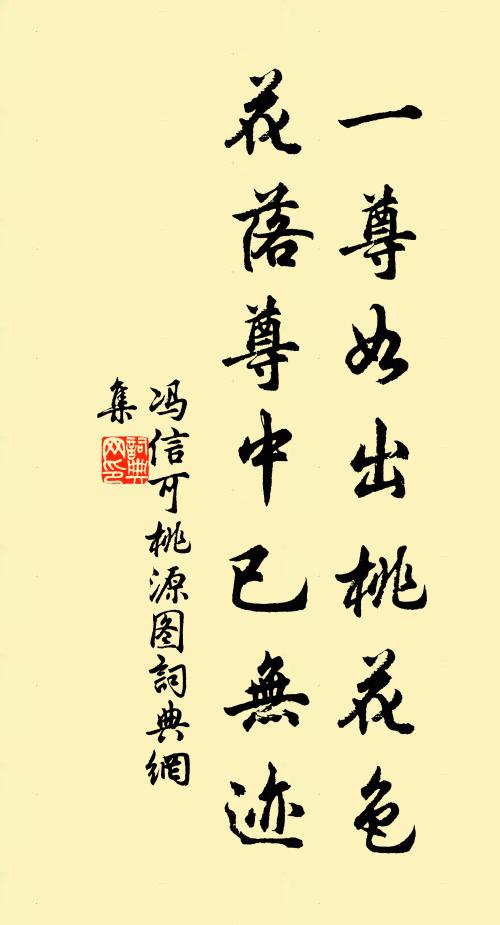 一尊如出桃花色
花落尊中已無迹
冯信可桃源图詞典網
集
詞典网印